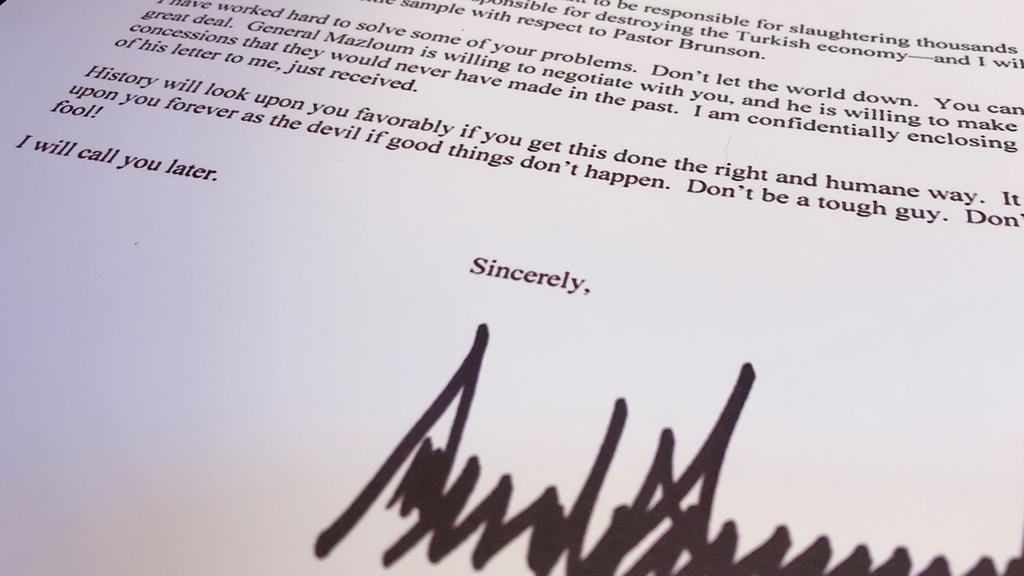 to be responsible for slaughtering thousands
responsible for destroying the Turkish economy—and I wil
sample with respect to Pastor Brunson.
I have worked hard to solve some of your problems. Don't let the world down. You can
great deal. General Mazloum is willing to negotiate with you, and he is willing to make
concessions that they would never have made in the past. I am confidentially enclosing
of his letter to me, just received.
History will look upon you favorably if you get this done the right and humane way. It
upon you forever as the devil if good things don't happen. Don't be a tough guy. Don'
fool!
I will call you later.
Sincerely,